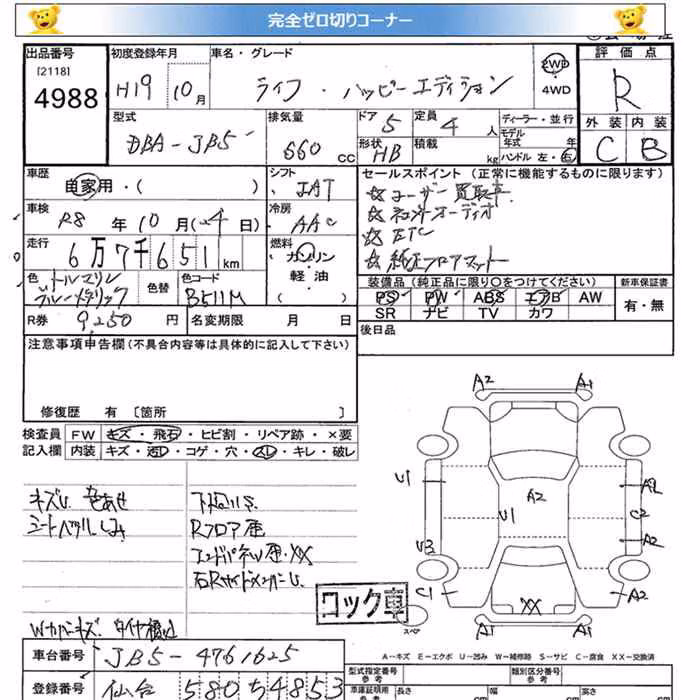 完全ゼロ切りコーナー
出品番号
[2118]
4988
初度登録年月
H19 10月
車名・グレード
ライフ・ハッピーエディション
2WD
・
4WD
評価点
R
外装 内装
C B
型式
DBA-JB5
排気量
660 cc
ドア 5
形状 HB
定員 4 人
積載 kg
ディーラー・並行
モデル年式 年
ハンドル 左・右
車歴
自家用・( )
シフト
IAT
車検
R8 年 10 月 (24日)
冷房
AAC
走行
6万7千651 km
燃料
ガソリン
軽・油
( )
色 トルマリン
ブルーメタリック
色替
色コード
B511M
R券 9250 円
名変期限 月 日
セールスポイント (正常に機能するものに限ります)
☆ユーザー買取車
☆ETC
☆純正フロアマット
装備品 (純正品に限り○をつけてください)
PS PW ABS エアB AW
SR ナビ TV カワ
新車保証書
有・無
後日品
注意事項申告欄 (不具合内容等は具体的に記入して下さい)
修復歴 有 〔箇所 〕
検査員 FW キズ・飛石・ヒビ割・リペア跡・×要
記入欄 内装 キズ・汚レ・コゲ・穴・スレ・キレ・破レ
キズU 色あせ
下廻りS
Rフロア歪
エンドパネル歪・XX
右RサイドメンバーU
コック車
A2 A1
U1 A2 U1 A2
C2
U3 A2
C1 XX A2
スペア A1 A1
A－キズ E－エクボ U－凹み W－補修跡 S－サビ C－腐食 XX－交換済
車台番号 JB5-4761625
登録番号 仙台 580 ち 4853
型式指定番号 類別区分番号
車庫証明用 長さ cm 幅 cm 高さ cm